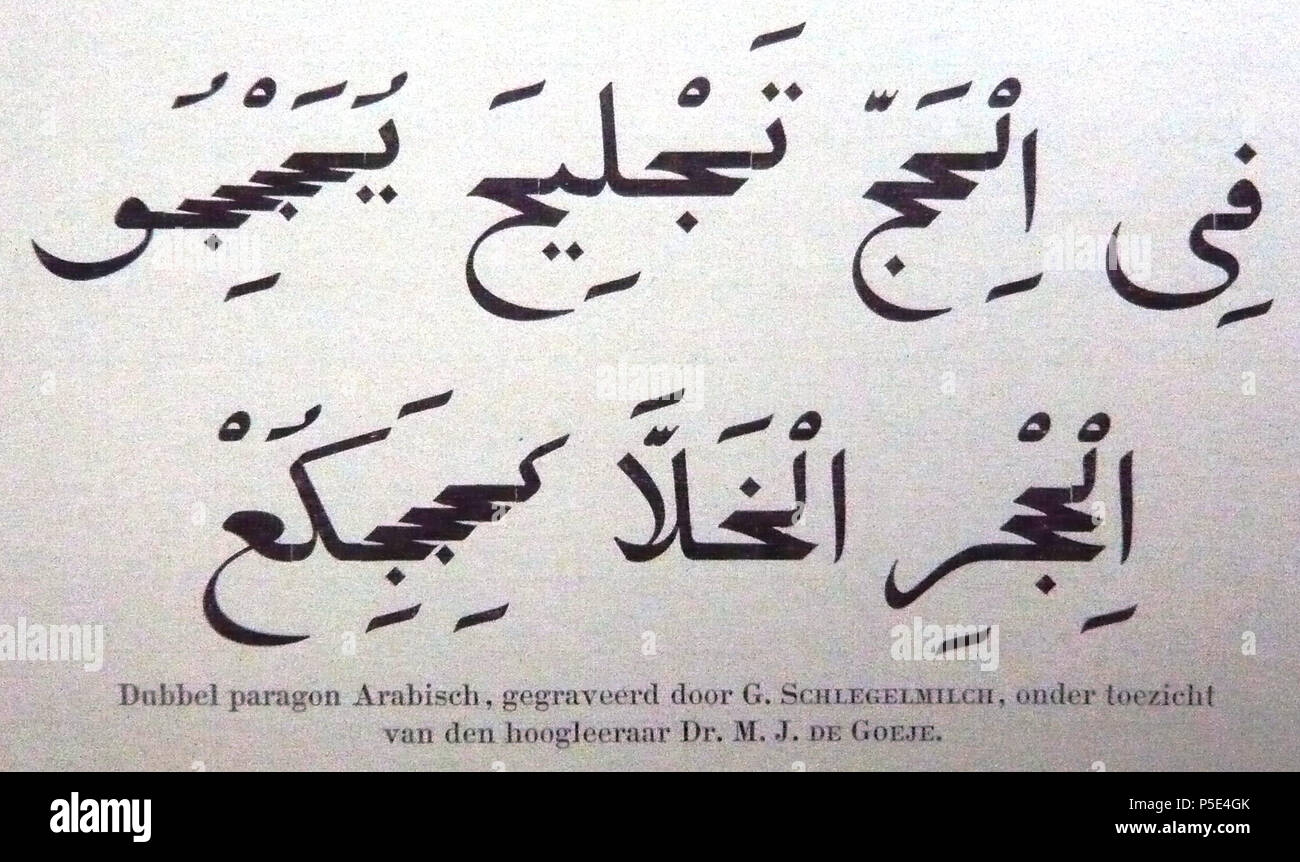 فِى اِلْحَجّ تَجْلِيحَ
الْخَلَّا
Dubbel paragon Arabisch, gegraveerd door G. SCHLEGELMILCH, onder toezicht
van den hoogleeraar Dr. M. J. DE GOEJE.
alamy
Image ID: P5E4GK
www.alamy.com